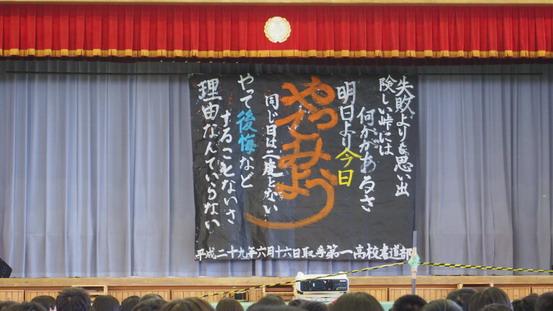 失敗よりも思い出
険しい峠には
何かがあるさ
明日より今日
やってみよう
同じ日は二度とない
やって後悔など
することないさ
理由なんていらない
平成二十九年六月十六日取手第一高校書道部